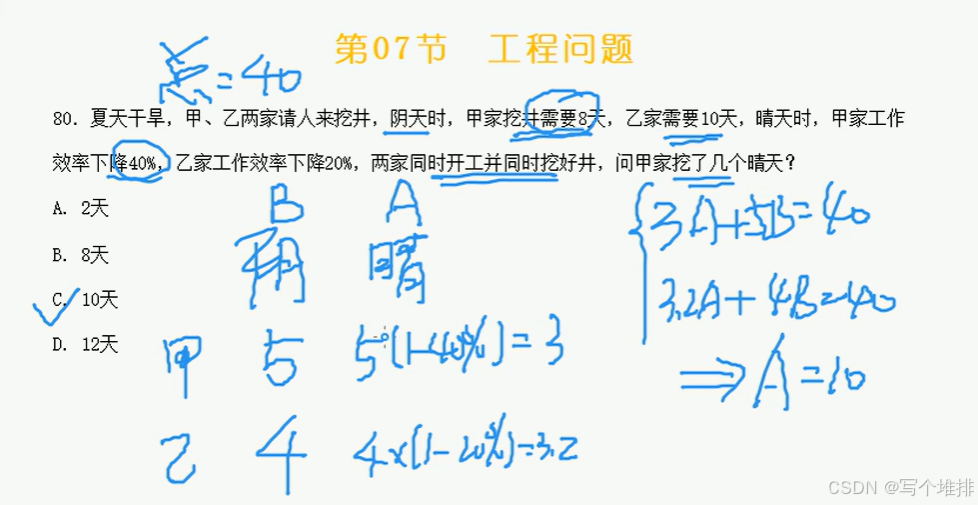 第07节 工程问题
总=40
80. 夏天干旱，甲、乙两家请人来挖井，阴天时，甲家挖井需要8天，乙家需要10天，晴天时，甲家工作
效率下降40%，乙家工作效率下降20%，两家同时开工并同时挖好井，问甲家挖了几个晴天？
A. 2天
B. 8天
C. 10天
D. 12天
B A
阴 晴
甲 5 5(1-40%)=3
乙 4 4×(1-20%)=3.2
3A+5B=40
3.2A+4B=40
⇒A=10
CSDN @写个堆排